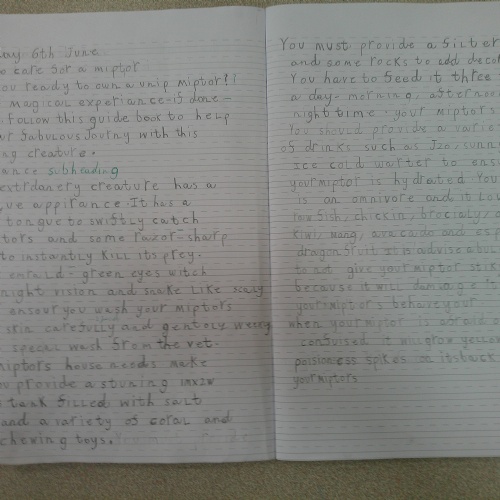 ay 6th June
care for a miptor
ou ready to own a unip miptor!!
magical experiance is done
follow this guide to help
ur fabulous Journy with this
ng creature.
ance subheading
extrdanery creature has a
ue appirance. It has a
tongue to swiftly catch
tors and some razor-sharp
to instantly kill its prey.
emrald-green eyes witch
night vision and snake like scaly
ensour you wash your miptors
skin carefully and gentoly
special wash from the vet.
miptors house needs make
ou provide a stuning
tank filled with salt
and a variety of coral and
chewing toys.
You must provide a filter
and some rocks to add deco
You have to feed it three
a day- morning, afterno
night time. your miptors
You should provide a varie
of drinks such as Jzo, sunny
ice cold warter to ens
your miptor is hydrated. You
is an omnivore and it lo
raw fish, chickin, brocialy,
kiwi, mang, avacaido and esp
dragon fruit. It is advise abu
to not give your miptor stik
because it will damage
your miptor's behaveyour
when your miptor is
confuised it will grow yellow
poisioness spikes on its back
your miptors